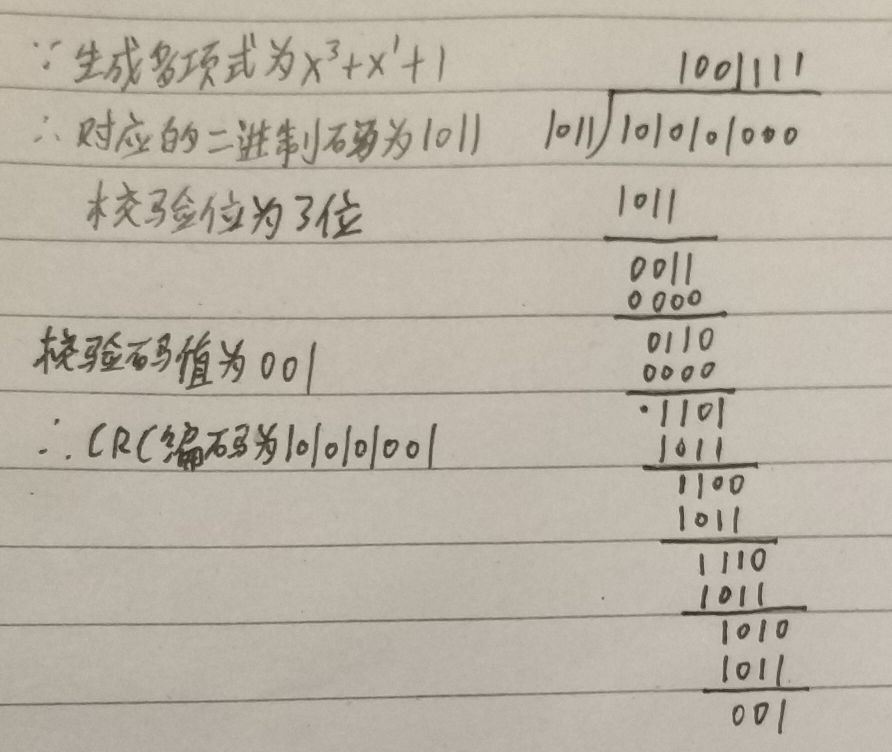 ∵生成多项式为x³+x¹+1
∴对应的二进制码为1011
校验位为3位
校验码值为001
∴CRC编码为1010101001
1001111
1011)1010101000
1011
0011
0000
0110
0000
1101
1011
1100
1011
1110
1011
1010
1011
001